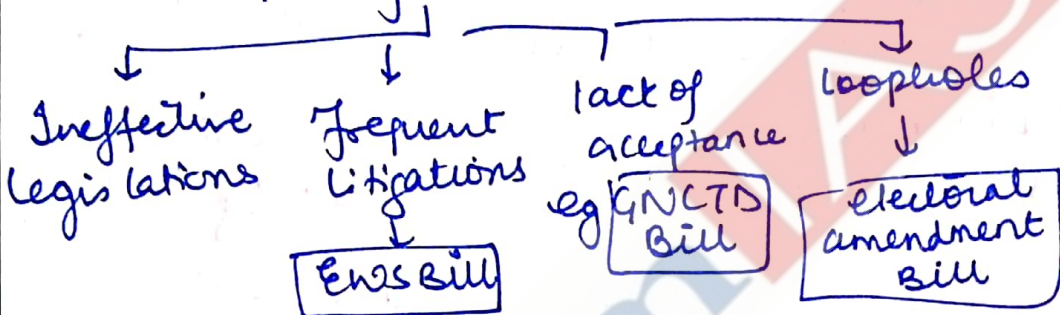 Ineffective
legislations
Frequent
Litigations
EWS Bill
lack of
acceptance
eg GNCTD
Bill
loopholes
electoral
amendment
Bill